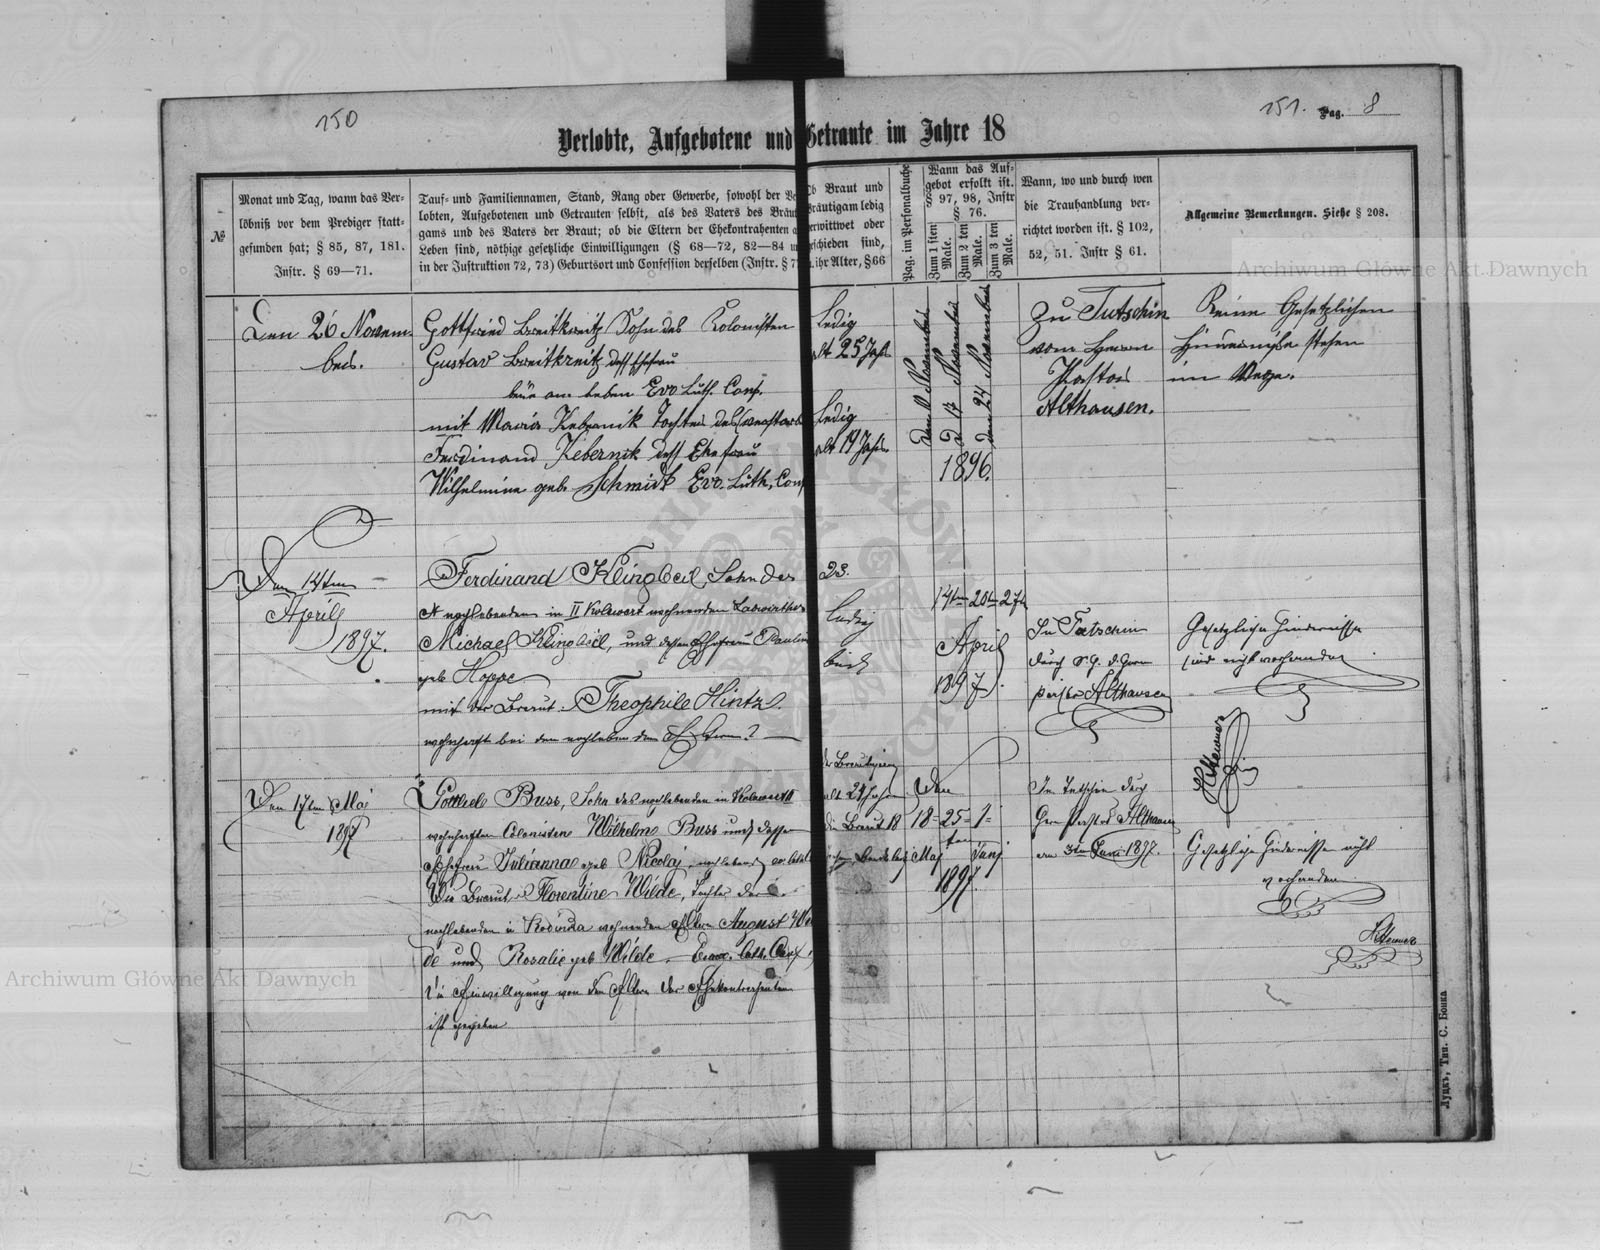 150
151. Pag. 8
Verlobte, Aufgebotene und Getraute im Jahre 18
№
Monat und Tag, wann das Ver-
löbniß vor dem Prediger statt-
gefunden hat; § 85, 87, 181.
Instr. § 69—71.
Tauf- und Familiennamen, Stand, Rang oder Gewerbe, sowohl der
lobten, Aufgebotenen und Getrauten selbst, als des Vaters des Bräut
gams und des Vaters der Braut; ob die Eltern der Ehekontrahenten
Leben sind, nöthige gesetzliche Einwilligungen (§ 68—72, 82—84
in der Instruktion 72, 73) Geburtsort und Confession derselben (Instr. § 7
Ob Braut und
Bräutigam ledig
verwittwet oder
geschieden sind,
u. ihr Alter, § 66
Pag. im Personalbuche
Wann das Auf-
gebot erfolkt ist.
§ 97, 98, Instr
§ 76.
Zum 1 sten Male.
Zum 2 ten Male.
Zum 3 ten Male.
Wann, wo und durch wen
die Trauhandlung ver-
richtet worden ist. § 102,
52, 51. Instr § 61.
Allgemeine Bemerkungen. Siehe § 208.
Archiwum Główne Akt Dawnych
Den 26 Novem-
ber.
Gottfried Breitkreitz Sohn des Kolonisten
Gustav Breitkreitz dess Ehefrau
am Leben Evo Luth. Conf.
mit Maria Kebernik Tochter des
Ferdinand Kebernik dess Ehefrau
Wilhelmine geb. Schmidt Evo. Luth. Conf
ledig
alt 25 Jahr
ledig
alt 19 Jahr
November
d 17 November
den 24 November
1896.
Zu Tutschin
vom Herrn
Pastor
Althausen.
Keine Gesetzlichen
Hindernisse stehen
im Wege.
Den 14ten
April
1897.
Ferdinand Klingbeil, Sohn des
nochlebenden in II Kolowert wohnenden
Michael Klingbeil, und dessen Ehefrau Paulin
geb Hoppe
mit der Braut Theophile Hintz
wohnhaft bei den nochlebenden Eltern ?
23.
ledig
beide
14ten 20ten 27
April
1897.
In Tutschin
durch S. H. d. Herrn
pastor Althausen
Gesetzliche Hindernisse
sind nicht vorhanden
Den 17ten Mai
1897
Gottlieb Buss, Sohn des nochlebenden in Kolowert II
wohnhaften Colonisten Wilhelm Buss und dessen
Ehefrau Julianna geb Nicolaj, nochlebend
Die Braut Florentine Wilde, Tochter der
nochlebenden in wohnenden Eltern August Wil
de und Rosalie geb Wilde. Evang. luth. Conf
Die Einwilligung von den Eltern der Ehekontrahenten
ist gegeben
der Bräutigam
alt 24 Jahre
die Braut 18
beide ledig
Den
18 - 25 - 1 -
ten
Mai Junj
1897.
In Tutschin durch
Herr Pastor Althausen
am 3ten Juni 1897.
Gesetzliche Hindernisse nicht
vorhanden
Archiwum Główne Akt Dawnych
Луцкъ, Тип. С. Бонка